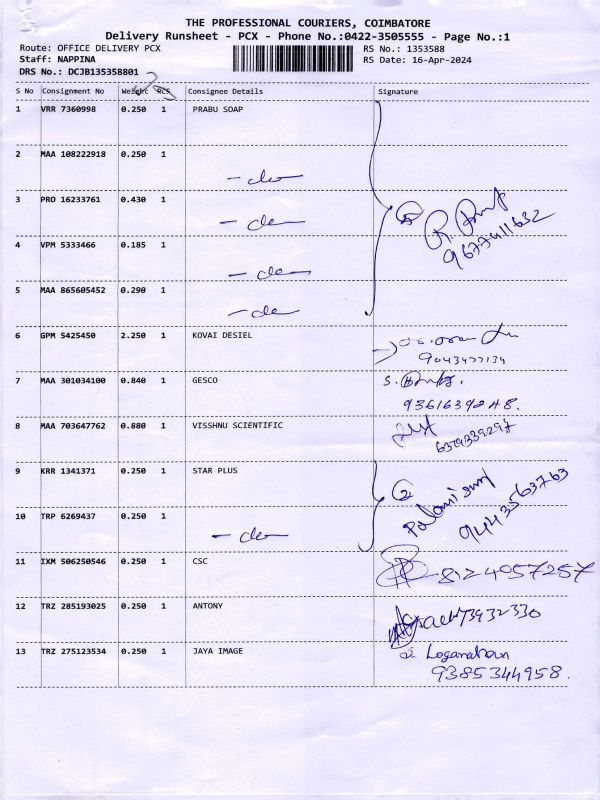 THE PROFESSIONAL COURIERS, COIMBATORE
Delivery Runsheet - PCX - Phone No.:0422-3505555 - Page No.:1
Route: OFFICE DELIVERY PCX RS No.: 1353588
Staff: NAPPINA RS Date: 16-Apr-2024
DRS No.: DCJB135358801
S No Consignment No Weight PCS Consignee Details Signature
1 VRR 7360998 0.250 1 PRABU SOAP
2 MAA 108222918 0.250 1 - do
3 PRO 16233761 0.430 1 - do
4 VPM 5333466 0.185 1 - do
5 MAA 865605452 0.290 1 - do
5
9677411632
6 GPM 5425450 2.250 1 KOVAI DESIEL
9043477134
7 MAA 301034100 0.840 1 GESCO
9361639248.
8 MAA 703647762 0.880 1 VISSHNU SCIENTIFIC
6379339297
9 KRR 1341371 0.250 1 STAR PLUS
10 TRP 6269437 0.250 1 - do
2
Palanisamy
9443563763
11 IXM 506250546 0.250 1 CSC 8124057257
12 TRZ 285193025 0.250 1 ANTONY
13 TRZ 275123534 0.250 1 JAYA IMAGE Loganathan
9385344958.